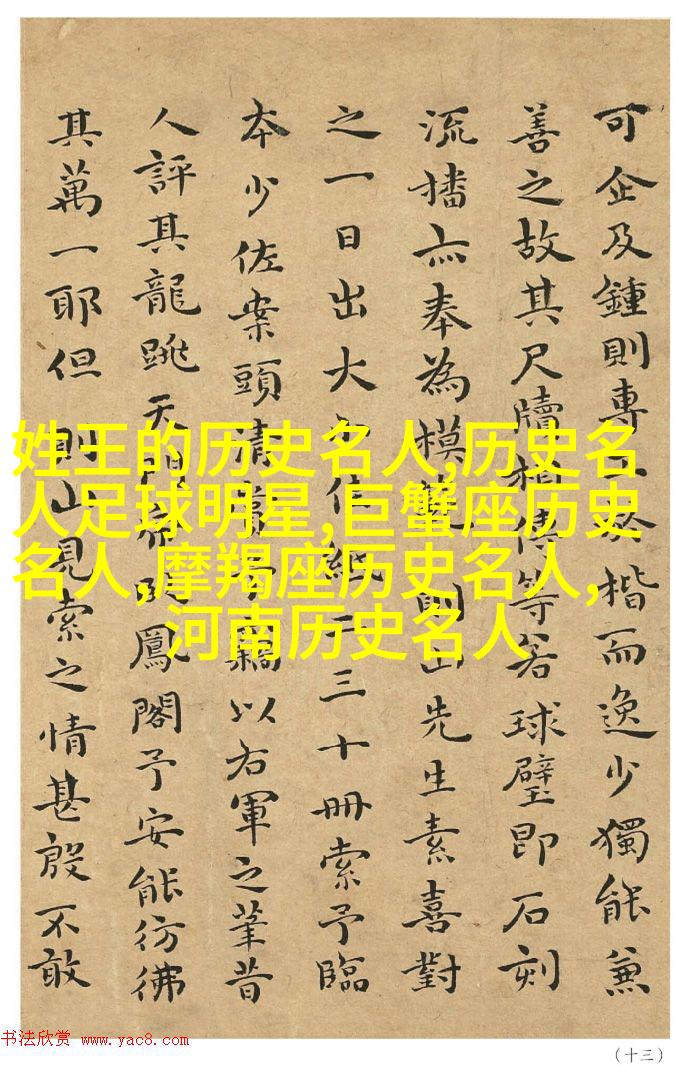 可企及鍾則專工於楷而逸少獨能兼
善之故其尺牘相傳等若球璧即石刻
流播亦奉為模範則山先生素喜對
之一日出大小佳紙二三十冊索予臨
本少佐案頭清以右軍之筆昔
人評其龍跳天門虎卧鳳閣予安能彷彿
其萬一耶但則山見索之情甚殷不敢
姓王的历史名人,历史名
人足球明星,巨蟹座历史
名人,摩羯座历史名人,
河南历史名人
书法欣赏 www.yac8.com
(十三)